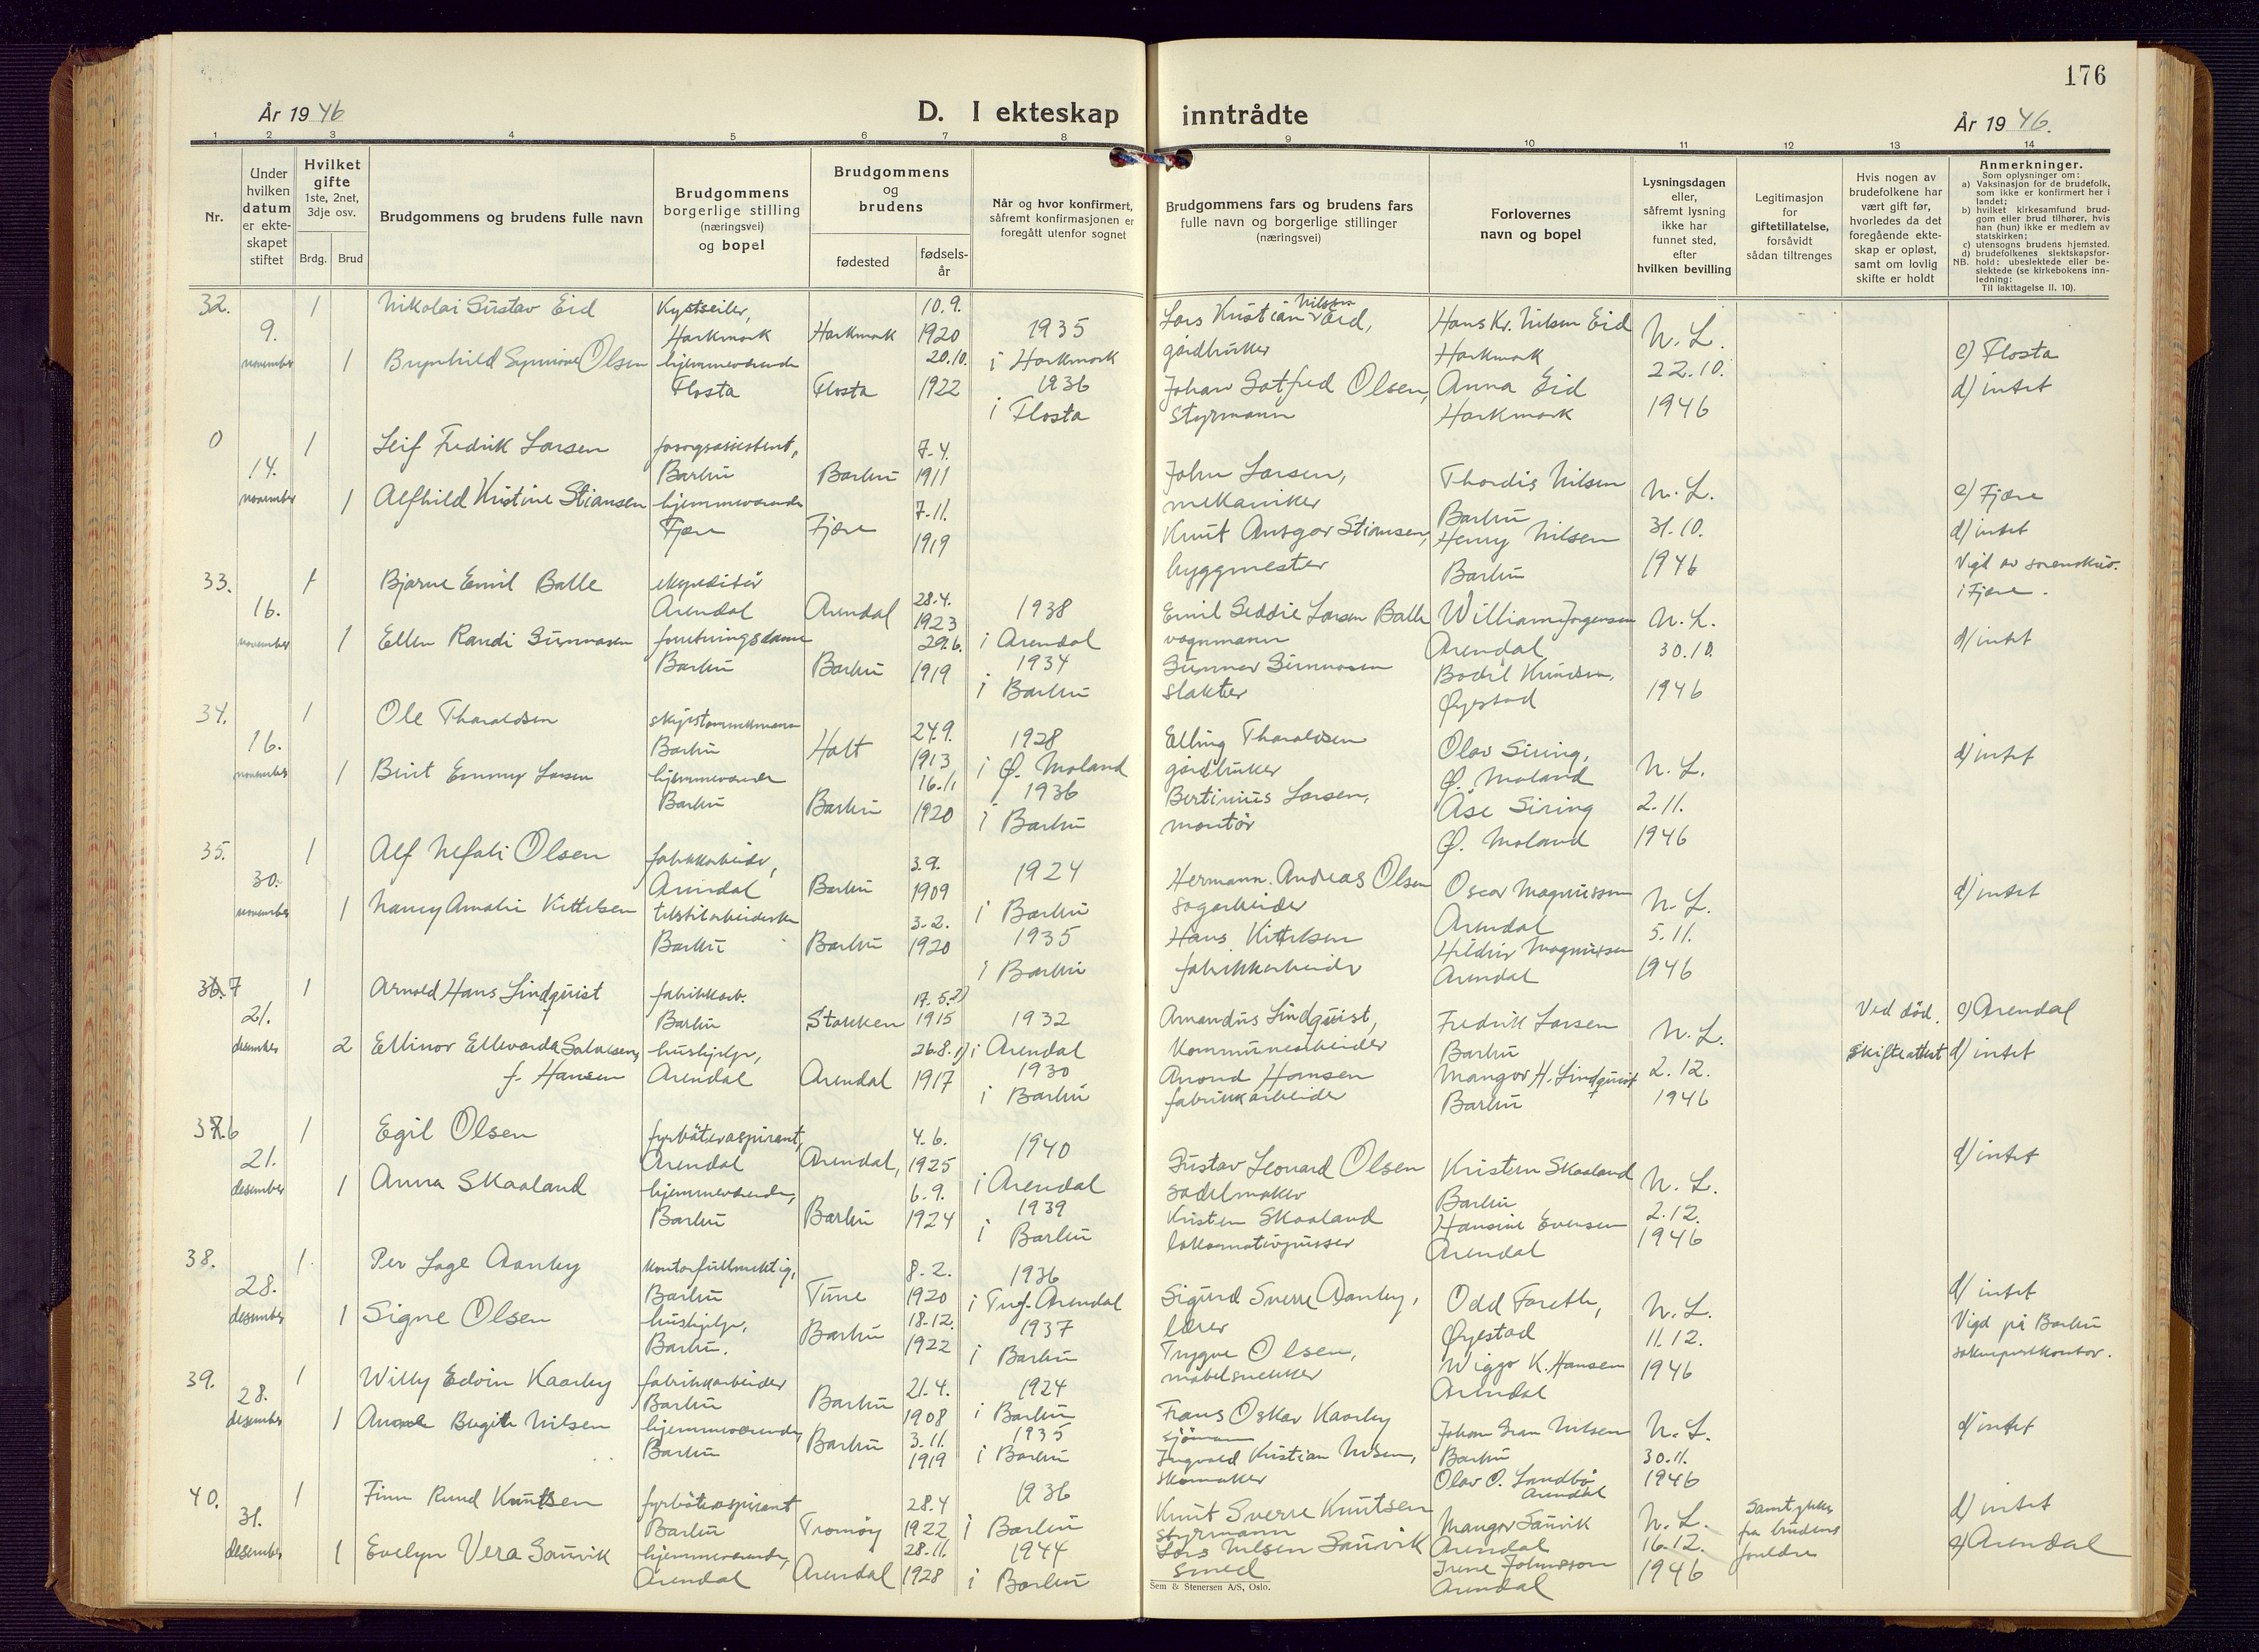 176
År 1946
D. I ekteskap inntrådte
År 1946.
1 2 3 4 5 6 7 8 9 10 11 12 13 14
Nr.
Under hvilken datum er ekteskapet stiftet
Hvilket gifte 1ste, 2net, 3dje osv.
Brdg. Brud
Brudgommens og brudens fulle navn
Brudgommens borgerlige stilling (næringsvei) og bopel
Brudgommens og brudens
fødested
fødselsår
Når og hvor konfirmert, såfremt konfirmasjonen er foregått utenfor sognet
Brudgommens fars og brudens fars fulle navn og borgerlige stillinger (næringsvei)
Forlovernes navn og bopel
Lysningsdagen eller, såfremt lysning ikke har funnet sted, efter hvilken bevilling
Legitimasjon for giftetillatelse, forsåvidt sådan tiltrenges
Hvis nogen av brudefolkene har vært gift før, hvorledes da det foregående ekteskap er opløst, samt om lovlig skifte er holdt
Anmerkninger.
Som oplysninger om:
a) Vaksinasjon for de brudefolk, som ikke er konfirmert her i landet;
b) hvilket kirkesamfund brudgom eller brud tilhører, hvis han (hun) ikke er medlem av statskirken;
c) utensogns brudens hjemsted.
d) brudefolkenes slektskapsforhold: ubeslektede eller beslektede (se kirkebokens innledning:
NB.
Til iakttagelse II. 10).
32. 9. november 1 Nikolai Gustav Eid Kystseiler, Harkmark Harkmark 10.9. 1920 1935 i Harkmark Lars Kristian Nilsen Eid, gårdbruker Hans Kr. Nilsen Eid Harkmark N. L. 22.10. 1946 c) Flosta
1 Brynhild Synnøve Olsen hjemmeværende Flosta Flosta 20.10. 1922 1936 i Flosta Johan Gotfred Olsen, styrmann Anna Eid Harkmark d) intet
0 14. november 1 Leif Fredrik Larsen Barbu Barbu 7.4. 1911 John Larsen, mekaniker Thordis Nilsen Barbu N. L. 31.10. 1946 c) Fjære
1 Alfhild Kristine Stiansen hjemmeværende Fjære Fjære 7.11. 1919 Knut Ansgar Stiansen, byggmester Henry Nilsen Barbu d) intet Vigd av sorenskriv. i Fjære.
33. 16. november 1 Bjarne Emil Balle ekspeditør Arendal Arendal 28.4. 1923 1938 i Arendal Emil Larsen Balle vognmann William Jørgensen Arendal N. L. 30.10. 1946 d) intet
1 Ellen Randi Gunnarsen forretningsdame Barbu Barbu 29.6. 1919 1934 i Barbu Gunnar Gunnarsen slakter Bodil Knudsen, Øyestad
34. 16. november 1 Ole Tharaldsen skipstømmermann Barbu Holt 24.9. 1913 1928 i Ø. Moland Elling Tharaldsen gårdbruker Olav Siring, Ø. Moland N. L. 2.11. 1946 d) intet
1 Birit Emmy Larsen hjemmeværende Barbu Barbu 16.11 1920 1936 i Barbu Bertinius Larsen, montør Åse Siring Ø. Moland
35. 30. november 1 Alf Nefali Olsen fabrikkarbeider, Arendal Barbu 3.9. 1909 1924 i Barbu Hermann Andreas Olsen sagarbeider Oscar Magnussen Arendal N. L. 5.11. 1946 d) intet
1 Nancy Amalie Kittelsen tekstilarbeiderske Barbu Barbu 3.2. 1920 1935 i Barbu Hans Kittelsen fabrikkarbeider Hildur Magnussen Arendal
36.7 21. desember 1 Arnold Hans Lindquist fabrikkarb. Barbu Stokken 17.5. 2) 1915 1932 i Arendal Amandus Lindquist, Kommunearbeider Fredrik Larsen Barbu N. L. 2.12. 1946 Ved død. skifteattest c) Arendal
2 Ellinor Ellevarda Salvesen, f. Hansen hushjelp, Arendal Arendal 26.8. 1) 1917 1930 i Barbu Hansen fabrikkarbeider Mangor H. Lindquist Barbu d) intet
37.6 21. desember 1 Egil Olsen fyrbøteraspirant, Arendal Arendal, 4.6. 1925 1940 i Arendal Gustav Leonard Olsen sadelmaker Kristen Skaaland Barbu N. L. 2.12. 1946 d) intet
1 Anna Skaaland hjemmeværende, Barbu Barbu 6.9. 1924 1939 i Barbu Kristen Skaaland lokomotivpusser Hansine Evensen Arendal
38. 28. desember 1. Per Lage Aanby kontorfullmektig, Barbu Tune 8.2. 1920 1936 i Tref. Arendal Sigurd Sverre Aanby, lærer Odd Foreth, Øyestad N. L. 11.12. 1946 d) intet
1 Signe Olsen hushjelp, Barbu. Barbu 18.12. 1922 1937 i Barbu Trygve Olsen, møbelsnekker Wiggo K. Hansen Arendal Vigd på Barbu sokneprestkontor.
39. 28. desember 1 Willy Edvin Kaarby fabrikkarbeider Barbu Barbu 21.4. 1908 1924 i Barbu Frans Oskar Kaarby sjømann Johan Gran Nilsen Barbu N. L. 30.11. 1946 d) intet
1 Birgit Nilsen hjemmeværende, Barbu Barbu 3.11. 1919 1935 i Barbu Ingvald Kristian Nilsen, skomaker Olav O. Landbø Arendal
40. 31. desember 1 Finn Ruud Knutsen fyrbøteraspirant Barbu Tromøy 28.4 1922 1936 i Barbu Knut Sverre Knutsen styrmann Mangor Saurvik Arendal N. L. 16.12. 1946 Samtykke fra brudens foreldre d) intet
1 Evelyn Vera Saurvik hjemmeværende, Arendal Arendal 28.11. 1928 1944 i Barbu Lars Nilsen Saurvik smed Irene Johnsson Arendal c) Arendal
Sem & Stenersen A/S, Oslo.